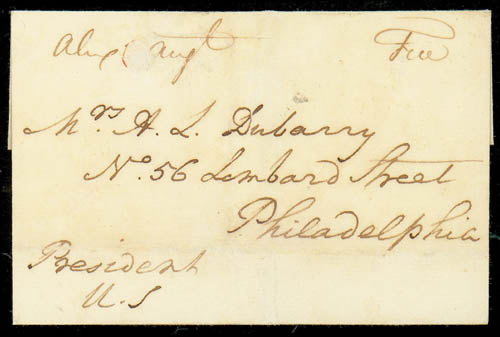 Alex augt Free
Mrs. A. L. Dubarry
No. 56 Lombard Street
Philadelphia
President
U.S